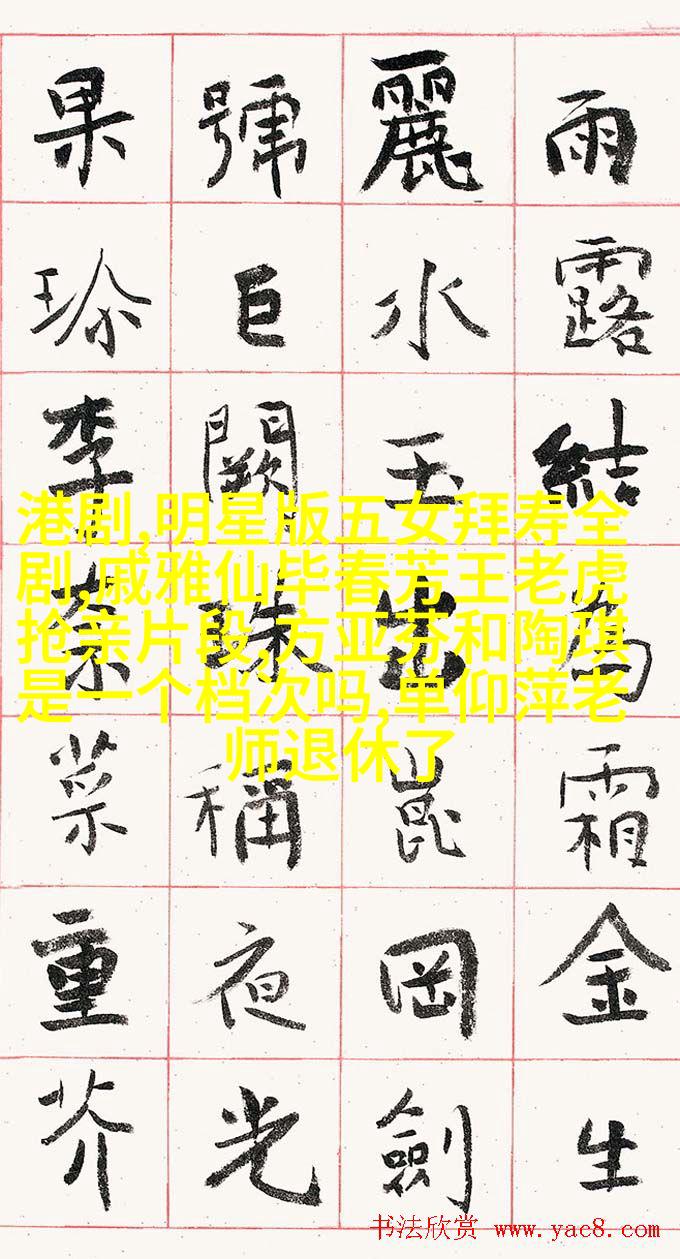 雨露結為霜金生
麗水玉出崑岡劍
號巨闕珠稱夜光
果珎李柰菜重芥
港剧,明星版五女拜寿全
剧,戚雅仙毕春芳王老虎
抢亲片段,方亚芬和陶琪
是一个档次吗,单仰萍老
师退休了
书法欣赏 www.yac8.com